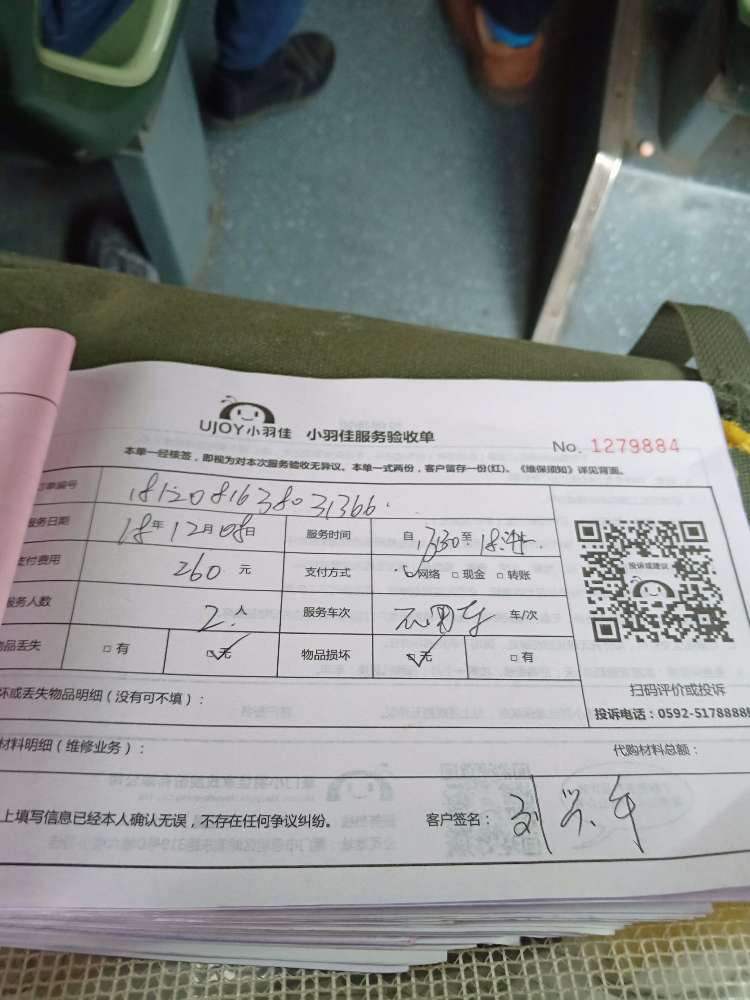 UJOY小羽佳 小羽佳服务验收单
No. 1279884
本单一经核签，即视为对本次服务验收无异议。本单一式两份，客户留存一份(红)。《维保须知》详见背面。
单编号 1812081638031366
服务日期 18年12月08日 服务时间 自13:30至18:
支付费用 260元 支付方式 网络 □现金 □转账
服务人数 2人 服务车次 不用车 车/次
物品丢失 □有 □无 物品损坏 □无 □有
投诉或建议
扫码评价或投诉
坏或丢失物品明细（没有可不填）：
投诉电话：0592-5178888
材料明细（维修业务）：
代购材料总额：
上填写信息已经本人确认无误，不存在任何争议纠纷。 客户签名：刘